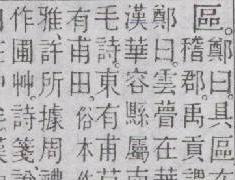 區。
鄭曰。具區在
稽郡。禹貢
鄭曰。雲夢在
漢華容縣屬南
毛詩。東有甫
有甫田。俗木
雅、許所據周禮
作圃艸。詩箋